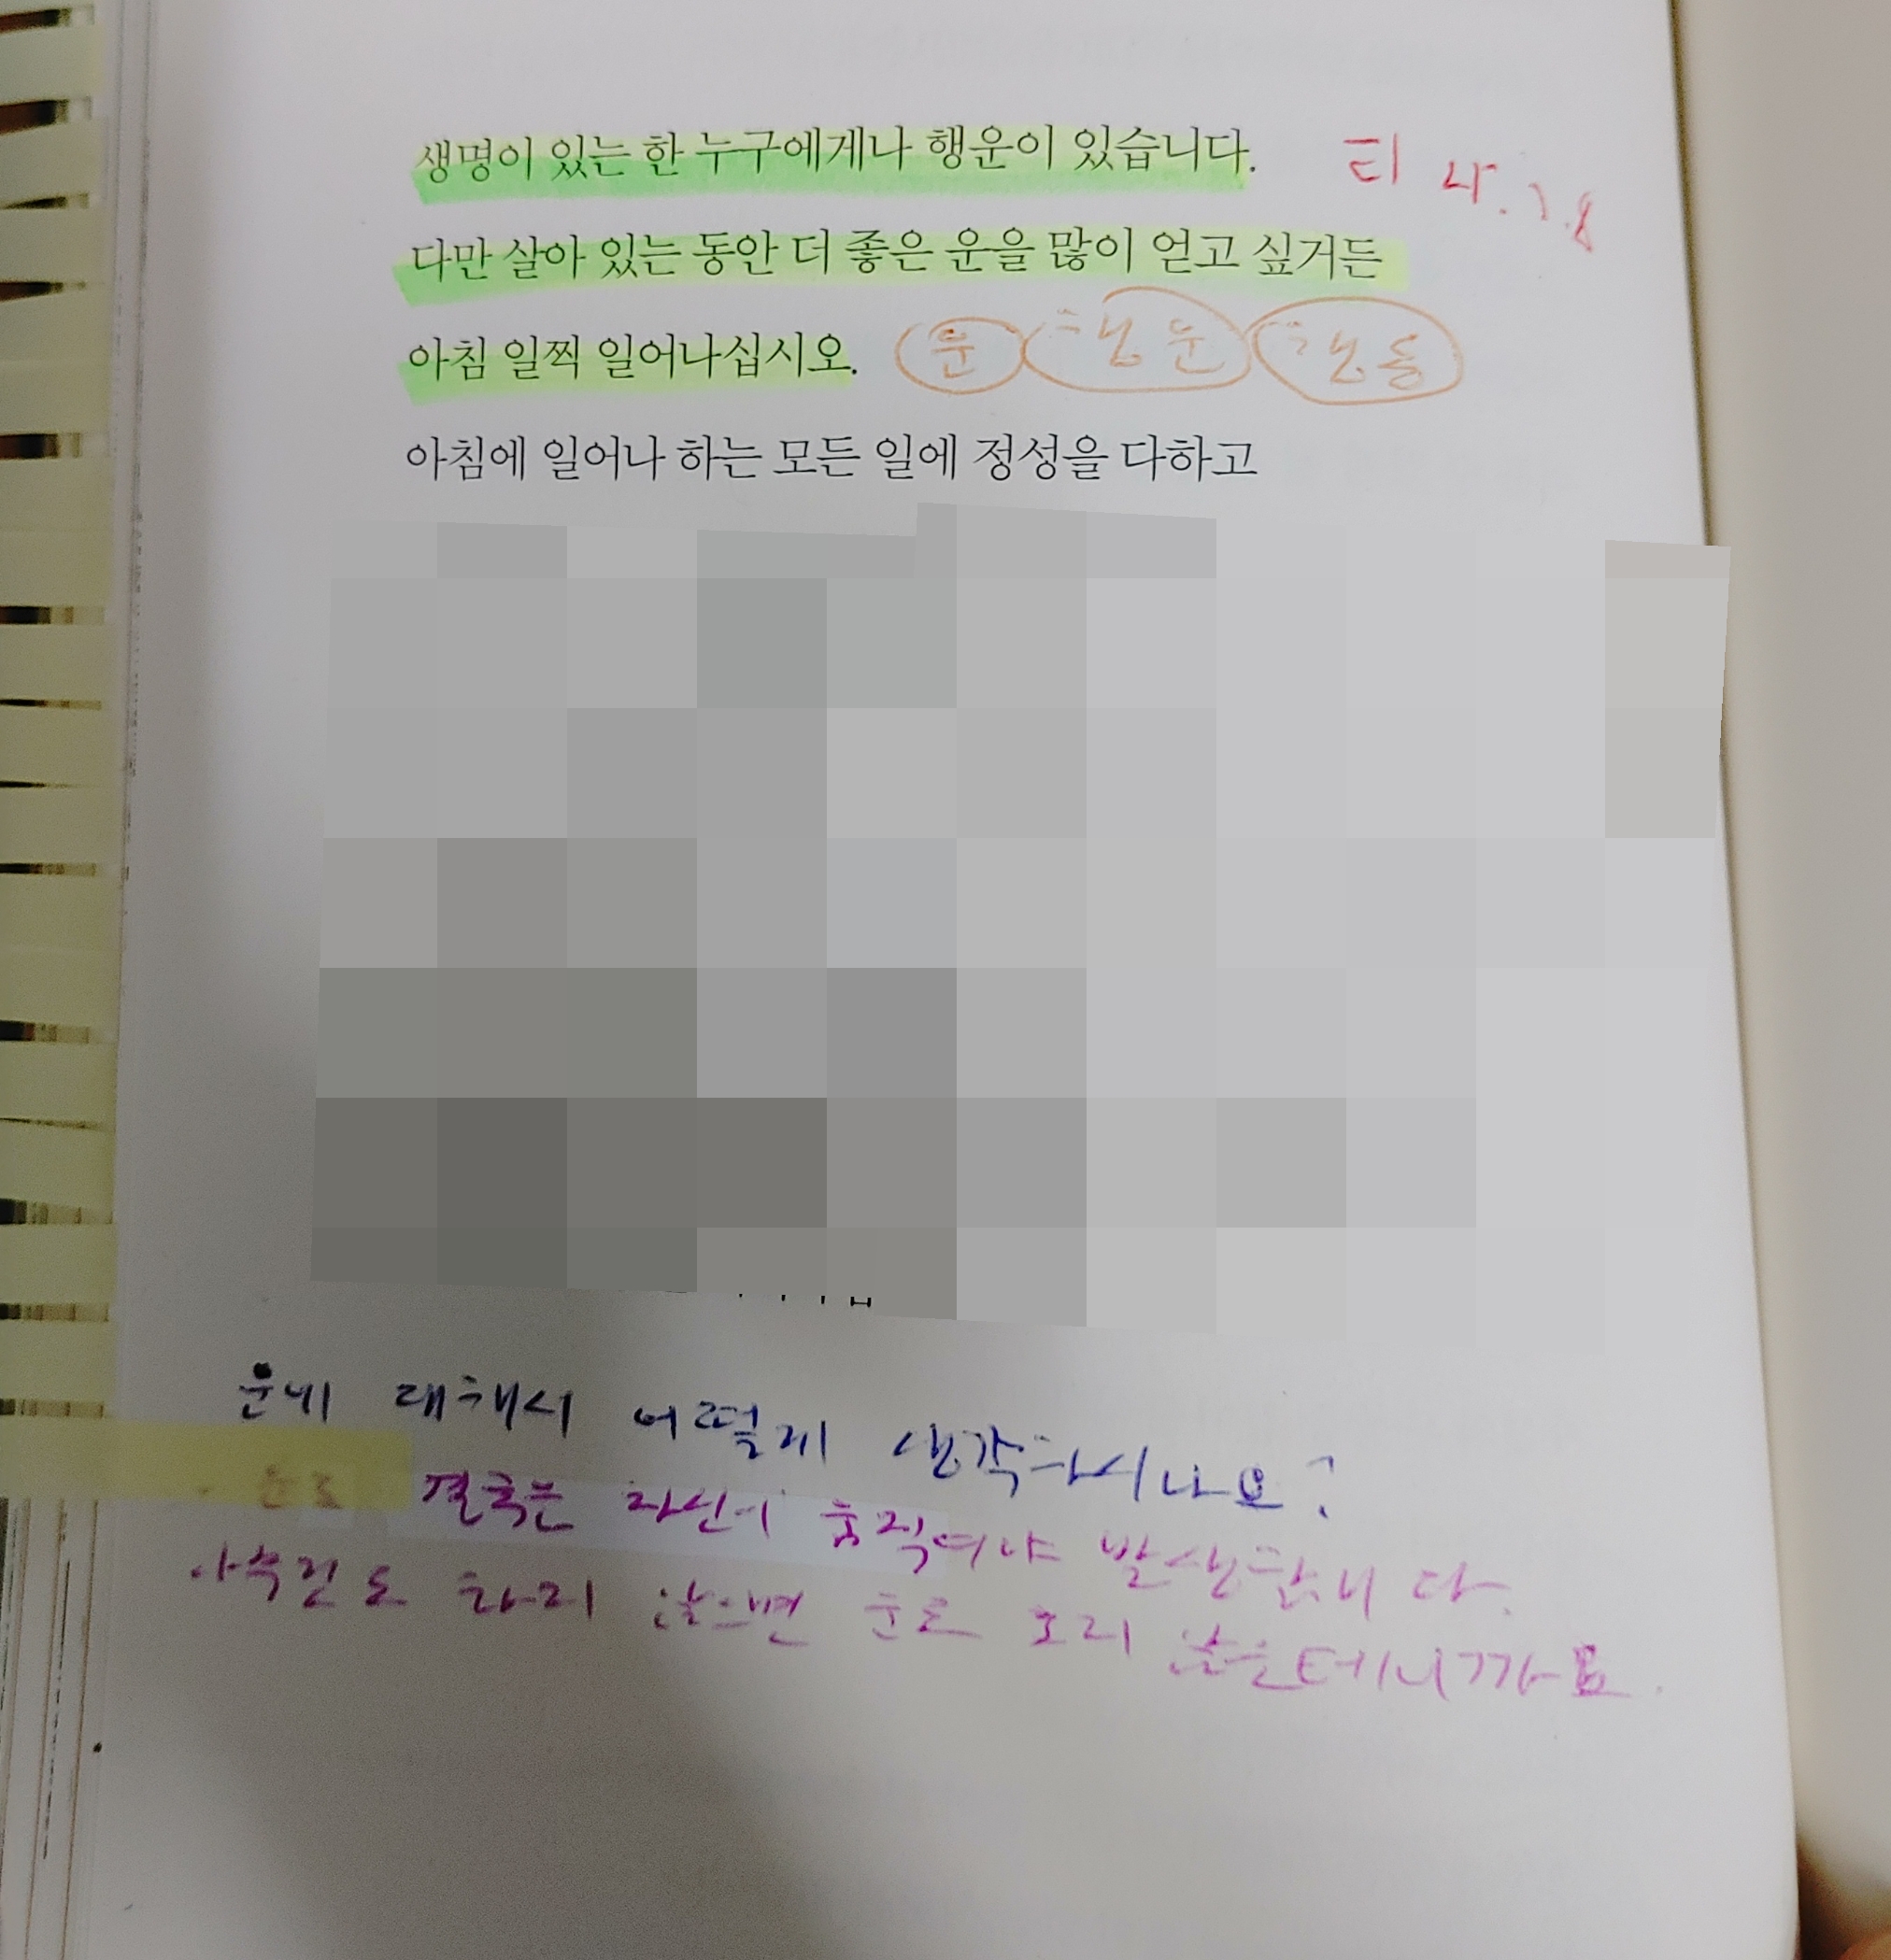 생명이 있는 한 누구에게나 행운이 있습니다.
다만 살아 있는 동안 더 좋은 운을 많이 얻고 싶거든
아침 일찍 일어나십시오. 운 행운 행동
아침에 일어나 하는 모든 일에 정성을 다하고
운에 대해서 어떻게 생각하시나요?
운도 결국은 자신이 움직여야 발생합니다.
아무것도 하지 않으면 운도 오지 않을테니까요.